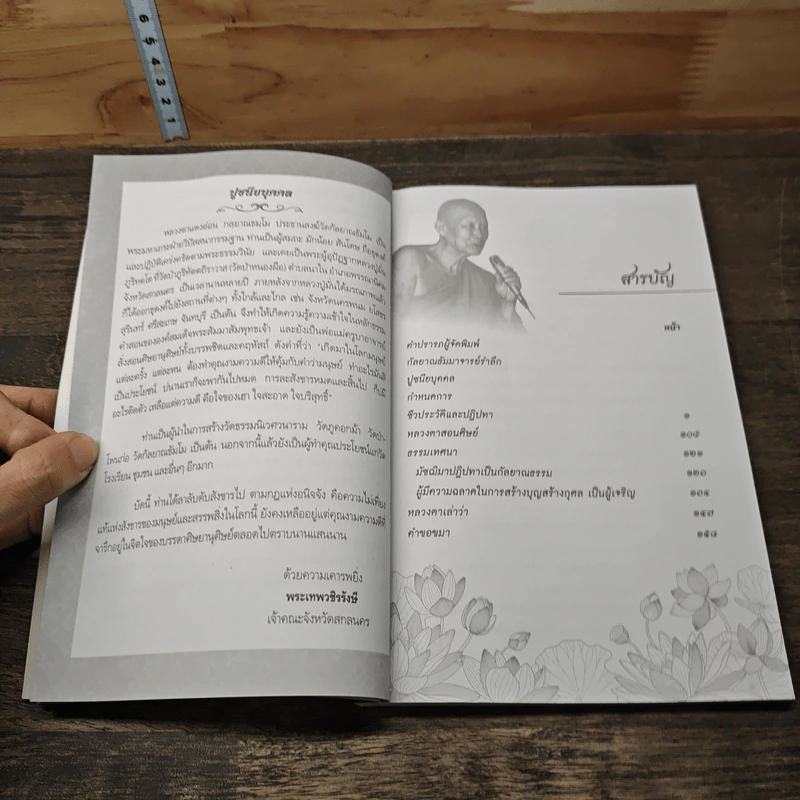 6 5 4 3 2 1
ปูชนียบุคคล
หลวงตาแตงอ่อน กลฺยาณธมฺโม ประธานสงฆ์วัดกัลยาณธัมโม เป็น
พระมหาเถระฝ่ายวิปัสสนากรรมฐาน ท่านเป็นผู้สมถะ มักน้อย สันโดษ ถือธุดงค์
และปฏิบัติเคร่งครัดตามพระธรรมวินัย และเคยเป็นพระผู้อุปัฏฐากหลวงปู่มั่น
ภูริทตฺโต ที่วัดป่าภูริทัตตถิราวาส (วัดป่าหนองผือ) ตำบลนาใน อำเภอพรรณานิคม
จังหวัดสกลนคร เป็นเวลานานหลายปี ภายหลังจากหลวงปู่มั่นได้มรณภาพแล้ว
ก็ได้ออกธุดงค์ไปยังสถานที่ต่างๆ ทั้งใกล้และไกล เช่น จังหวัดนครพนม ยโสธร
สุรินทร์ ศรีสะเกษ จันทบุรี เป็นต้น จึงทำให้เกิดความรู้ความเข้าใจในหลักธรรม
คำสอนขององค์สมเด็จพระสัมมาสัมพุทธเจ้า และยังเป็นพ่อแม่ครูบาอาจารย์
สั่งสอนศิษยานุศิษย์ทั้งบรรพชิตและคฤหัสถ์ ดังคำที่ว่า "เกิดมาในโลกมนุษย์
แต่ละครั้ง แต่ละหน ต้องทำคุณงามความดีให้คุ้มกับคำว่ามนุษย์ ทำอะไรมันสิ
เป็นประโยชน์ บ่นานเราก็จะพากันไปหมด การละสังขารหมดและสิ้นไป ก็บ่มี
อะไรติดตัว เหลือแต่ความดี คือใจของเฮา ใจสะอาด ใจบริสุทธิ์"
ท่านเป็นผู้นำในการสร้างวัดธรรมนิเวศวนาราม วัดภูคอกม้า วัดป่า-
โหนก่อ วัดกัลยาณธัมโม เป็นต้น นอกจากนี้แล้วยังเป็นผู้ทำคุณประโยชน์แก่วัด
โรงเรียน ชุมชน และอื่นๆ อีกมาก
บัดนี้ ท่านได้ลาลับดับสังขารไป ตามกฎแห่งอนิจจัง คือความไม่เที่ยง
แท้แห่งสังขารของมนุษย์และสรรพสิ่งในโลกนี้ ยังคงเหลืออยู่แต่คุณงามความดีที่
จารึกอยู่ในจิตใจของบรรดาศิษยานุศิษย์ตลอดไปตราบนานแสนนาน
ด้วยความเคารพยิ่ง
พระเทพวชิรรังษี
เจ้าคณะจังหวัดสกลนคร
สารบัญ
หน้า
คำปรารภผู้จัดพิมพ์
กัลยาณธัมมาจารย์รำลึก
ปูชนียบุคคล
กำหนดการ
ชีวประวัติและปฏิปทา ๑
หลวงตาสอนศิษย์ ๑๐๕
ธรรมเทศนา ๑๒๑
มัชฌิมาปฏิปทาเป็นกัลยาณธรรม ๑๒๐
ผู้มีความฉลาดในการสร้างบุญสร้างกุศล เป็นผู้เจริญ ๑๓๔
หลวงตาเล่าว่า ๑๔๗
คำขอขมา ๑๕๘